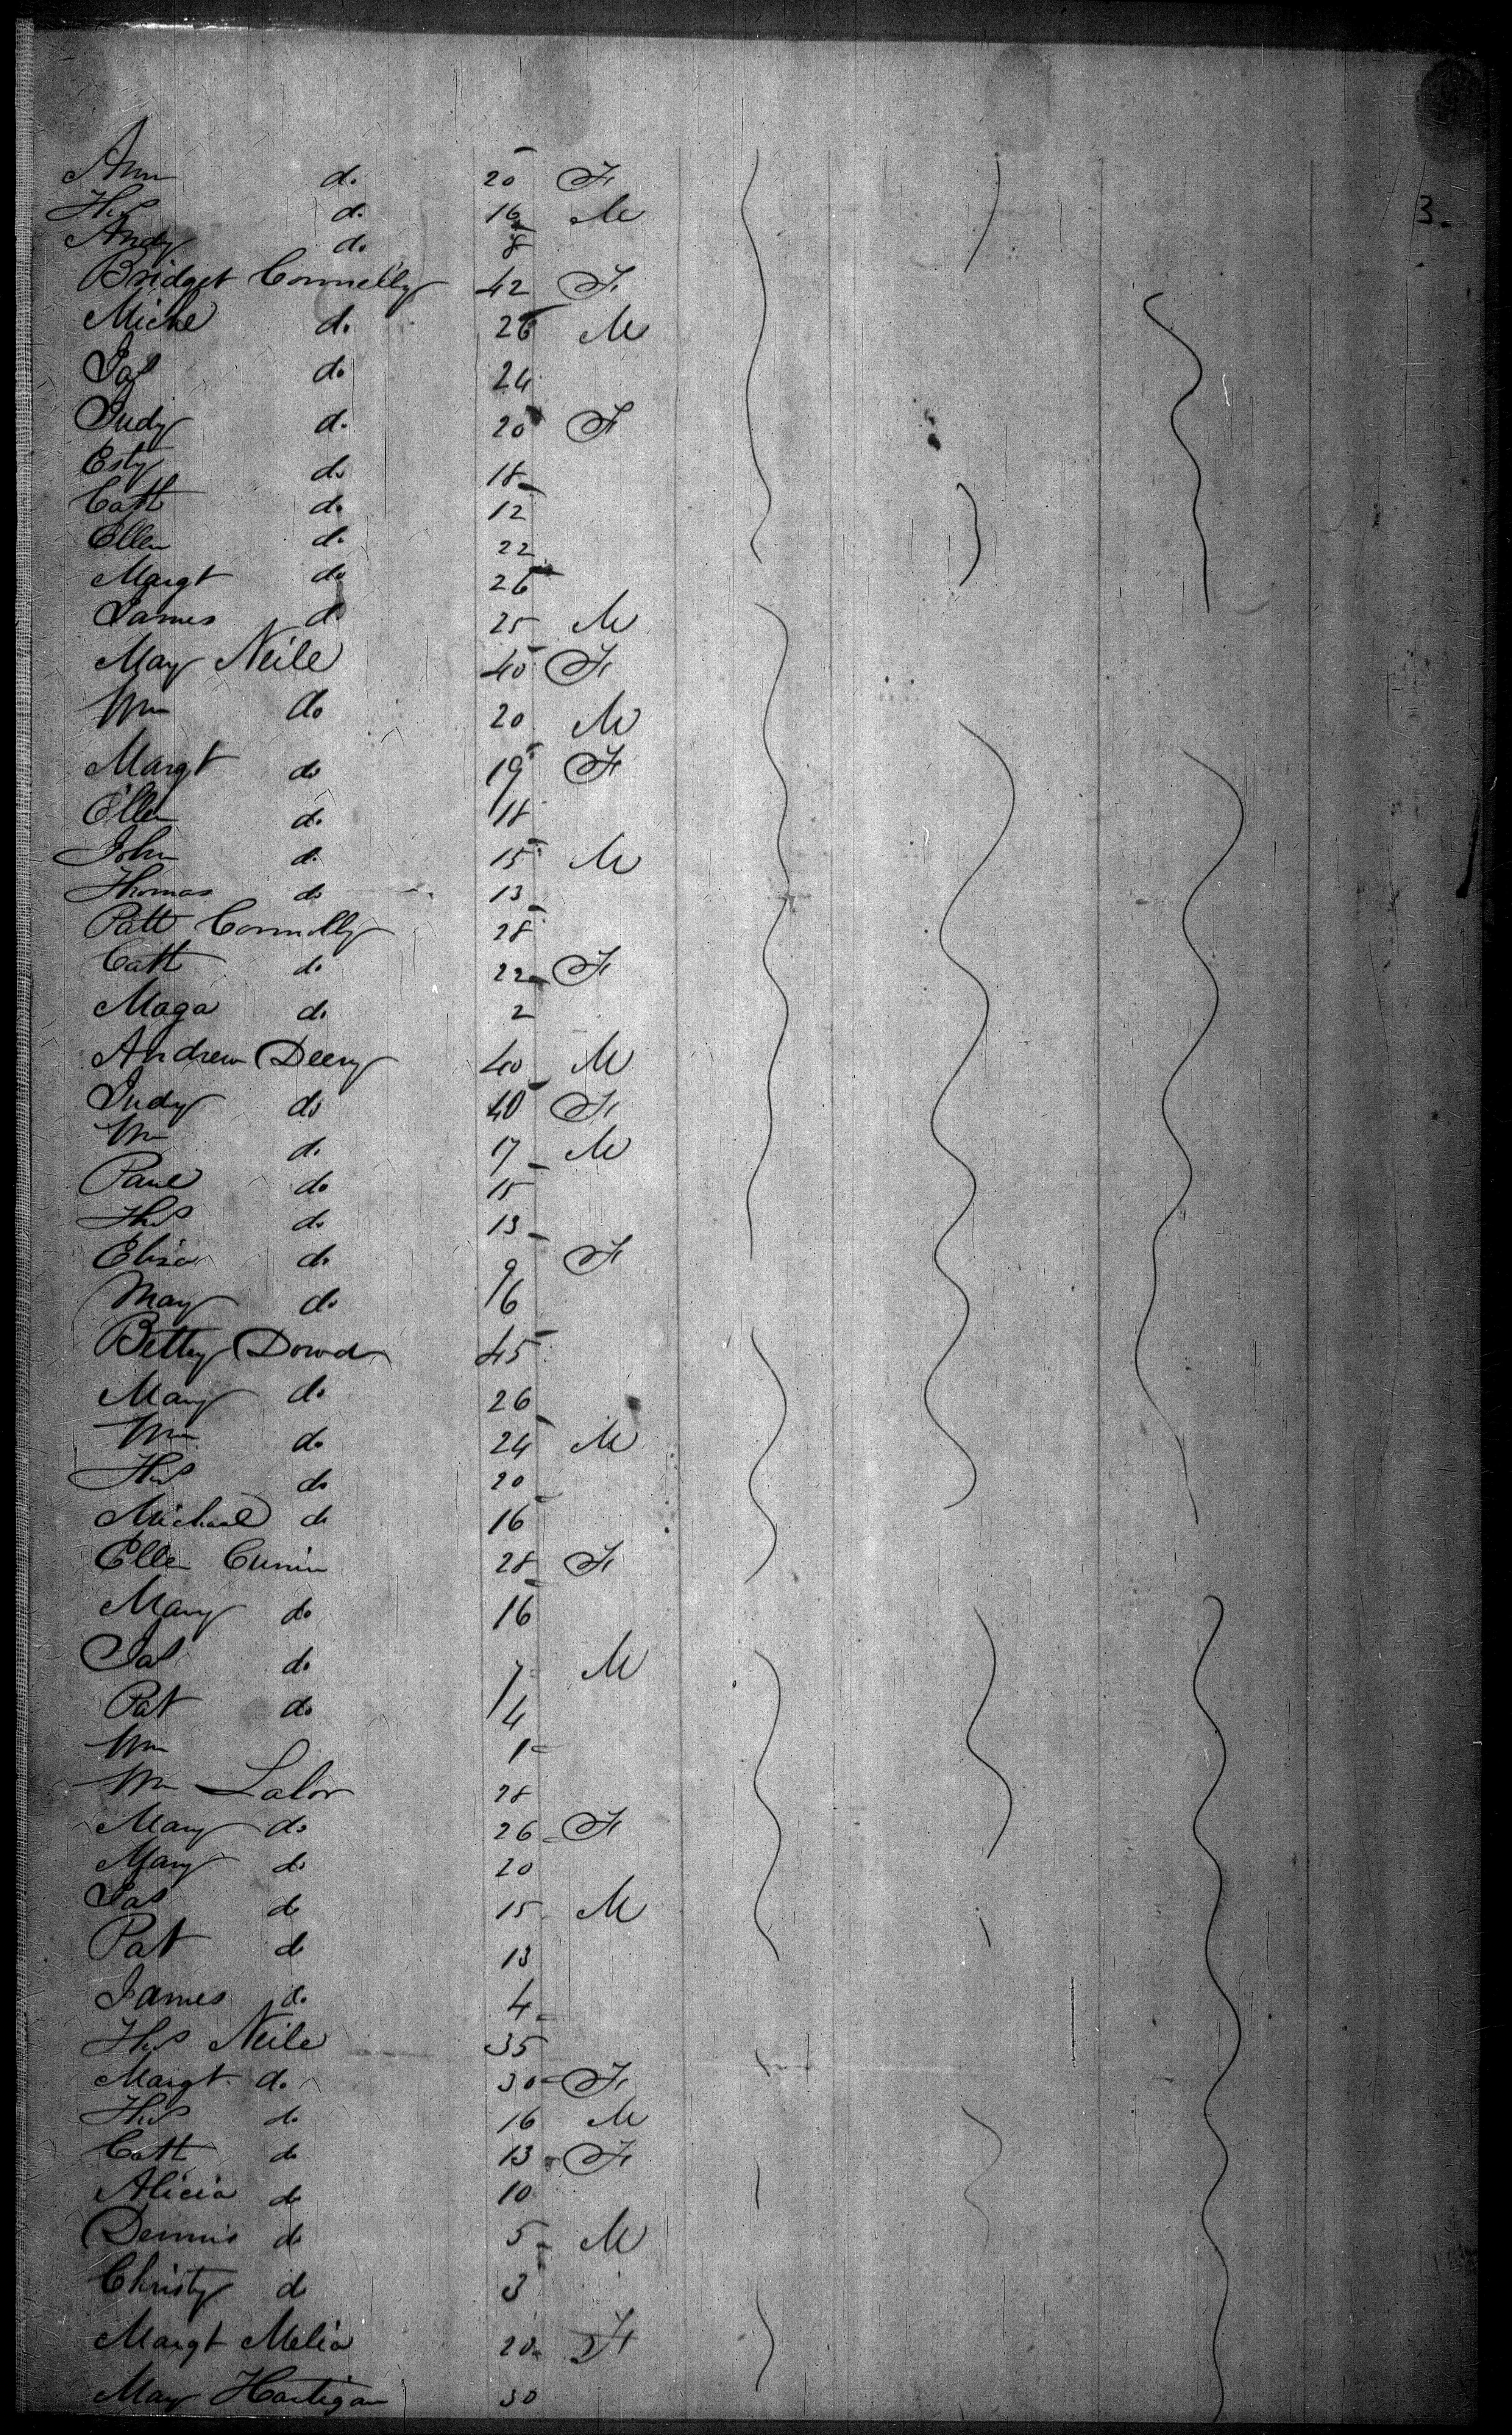 Ann do 20 F
Thos do 16 M
Andy do 8
3.
Bridget Connelly 42 F
Michl do 26 M
Jas do 24
Judy do 20 F
Esty do 18
Cath do 12
Ellen do 22
Margt do 26
James do 25 M
Mary Neile 40 F
Wm do 20 M
Margt do 19 F
Ellen do 18
John do 15 M
Thomas do 13
Patt Connolly 28
Cath do 22 F
Maga do 2
Andrew Deery 40 M
Judy do 40 F
Wm do 17 M
Paul do 15
Thos do 13
Eliza do 9 F
Mary do 6
Betty Dowd 45
Mary do 26
Wm do 24 M
Thos do 20
Michael do 16
Ellen Cunin 28 F
Mary do 16
Jas do 7 M
Pat do 4
Wm 1
Wm Lalor 28
Mary do 26 F
Mary do 20
Jas do 15 M
Pat do 13
James do 4
Thos Neile 35
Margt do 30 F
Thos do 16 M
Cath do 13 F
Alicia do 10
Dennis do 5 M
Christy do 3
Margt Melia 20 F
Mary Hartigan 30